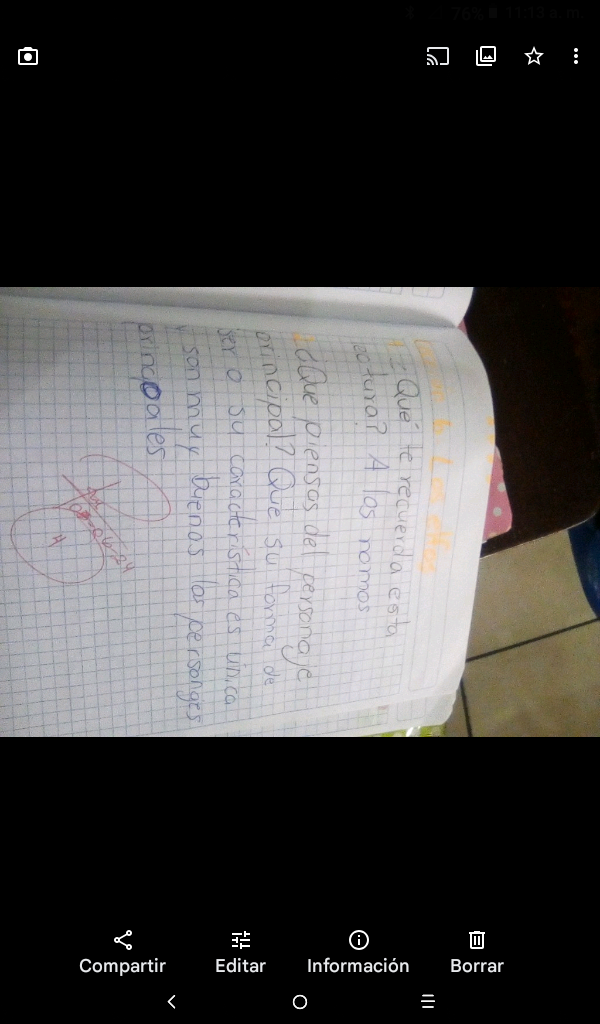 11:13 a. m.
1 ¿Qué te recuerda esta
lectura? A los nomos
2 ¿Que piensas del personaje
principal? Que su forma de
ser o su característica es única
y son muy buenos los personges
principales
4
Compartir
Editar
Información
Borrar